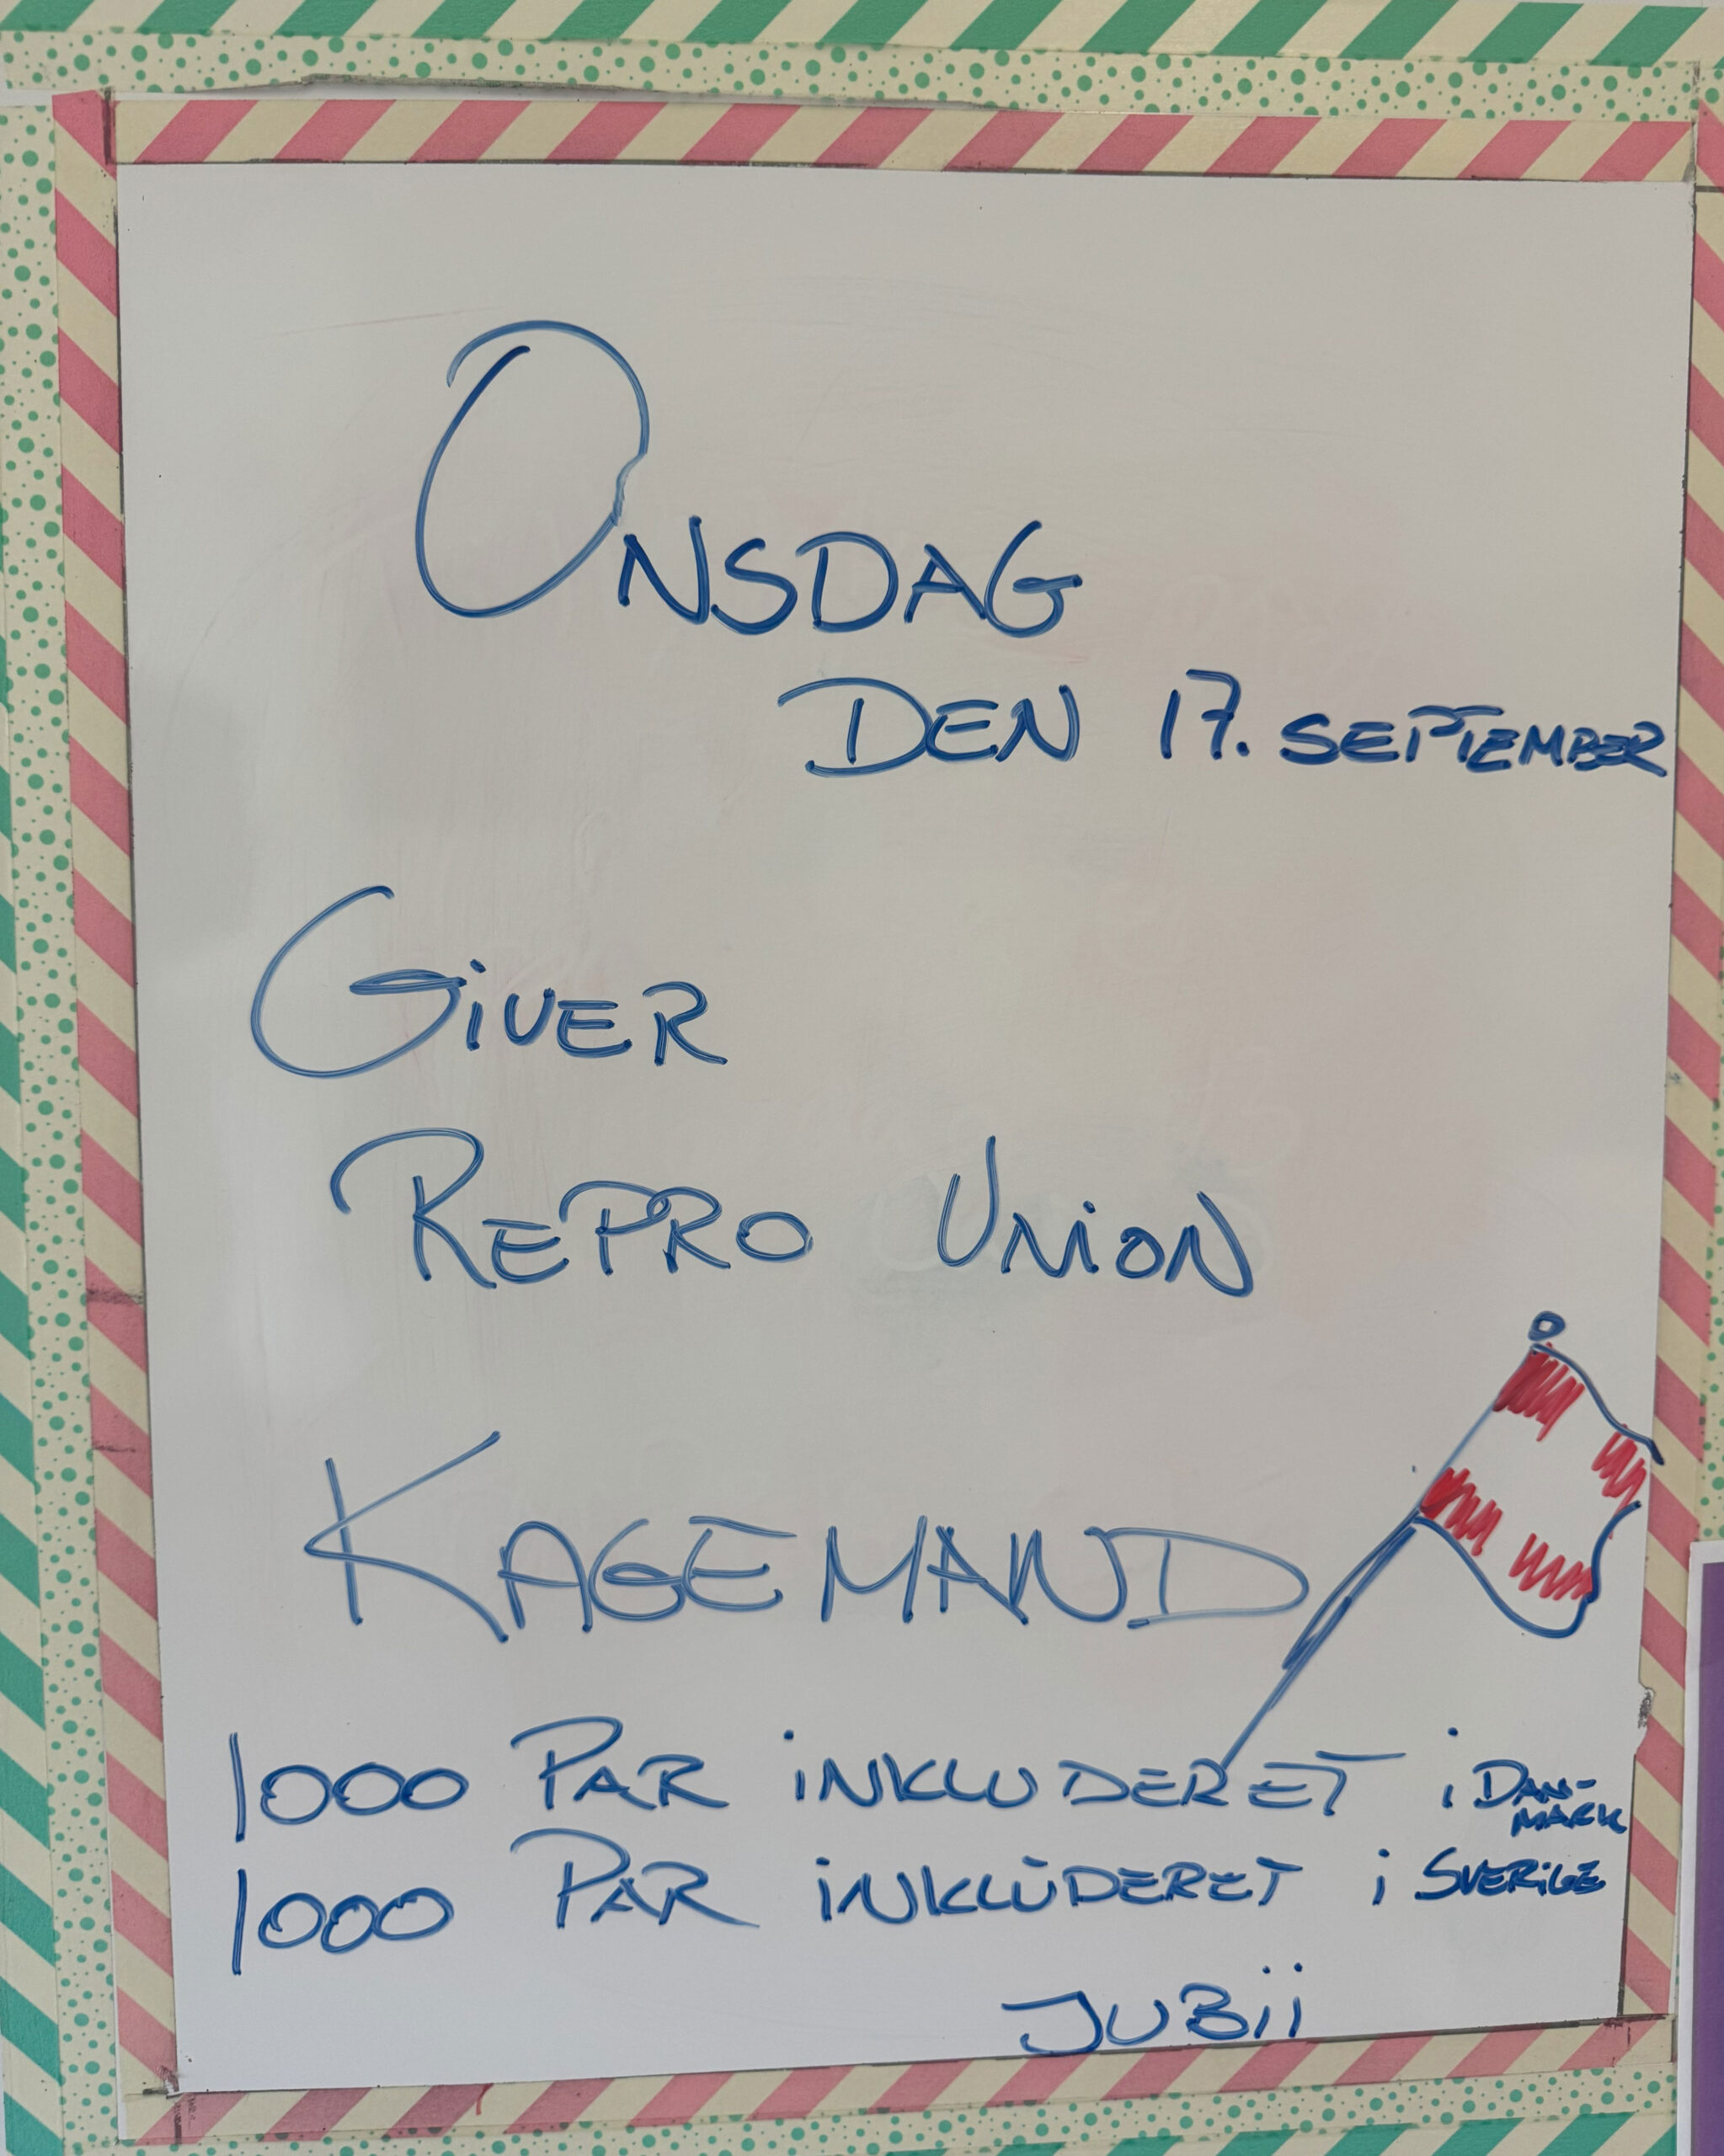 ONSDAG
DEN 17. SEPTEMBER
GiVER
REPRO UNiON
KAGEMAND
1000 PAR iNKLUDERET i DAN-
MARK
1000 PAR iNKLUDERET i SVERiGE
JUBii